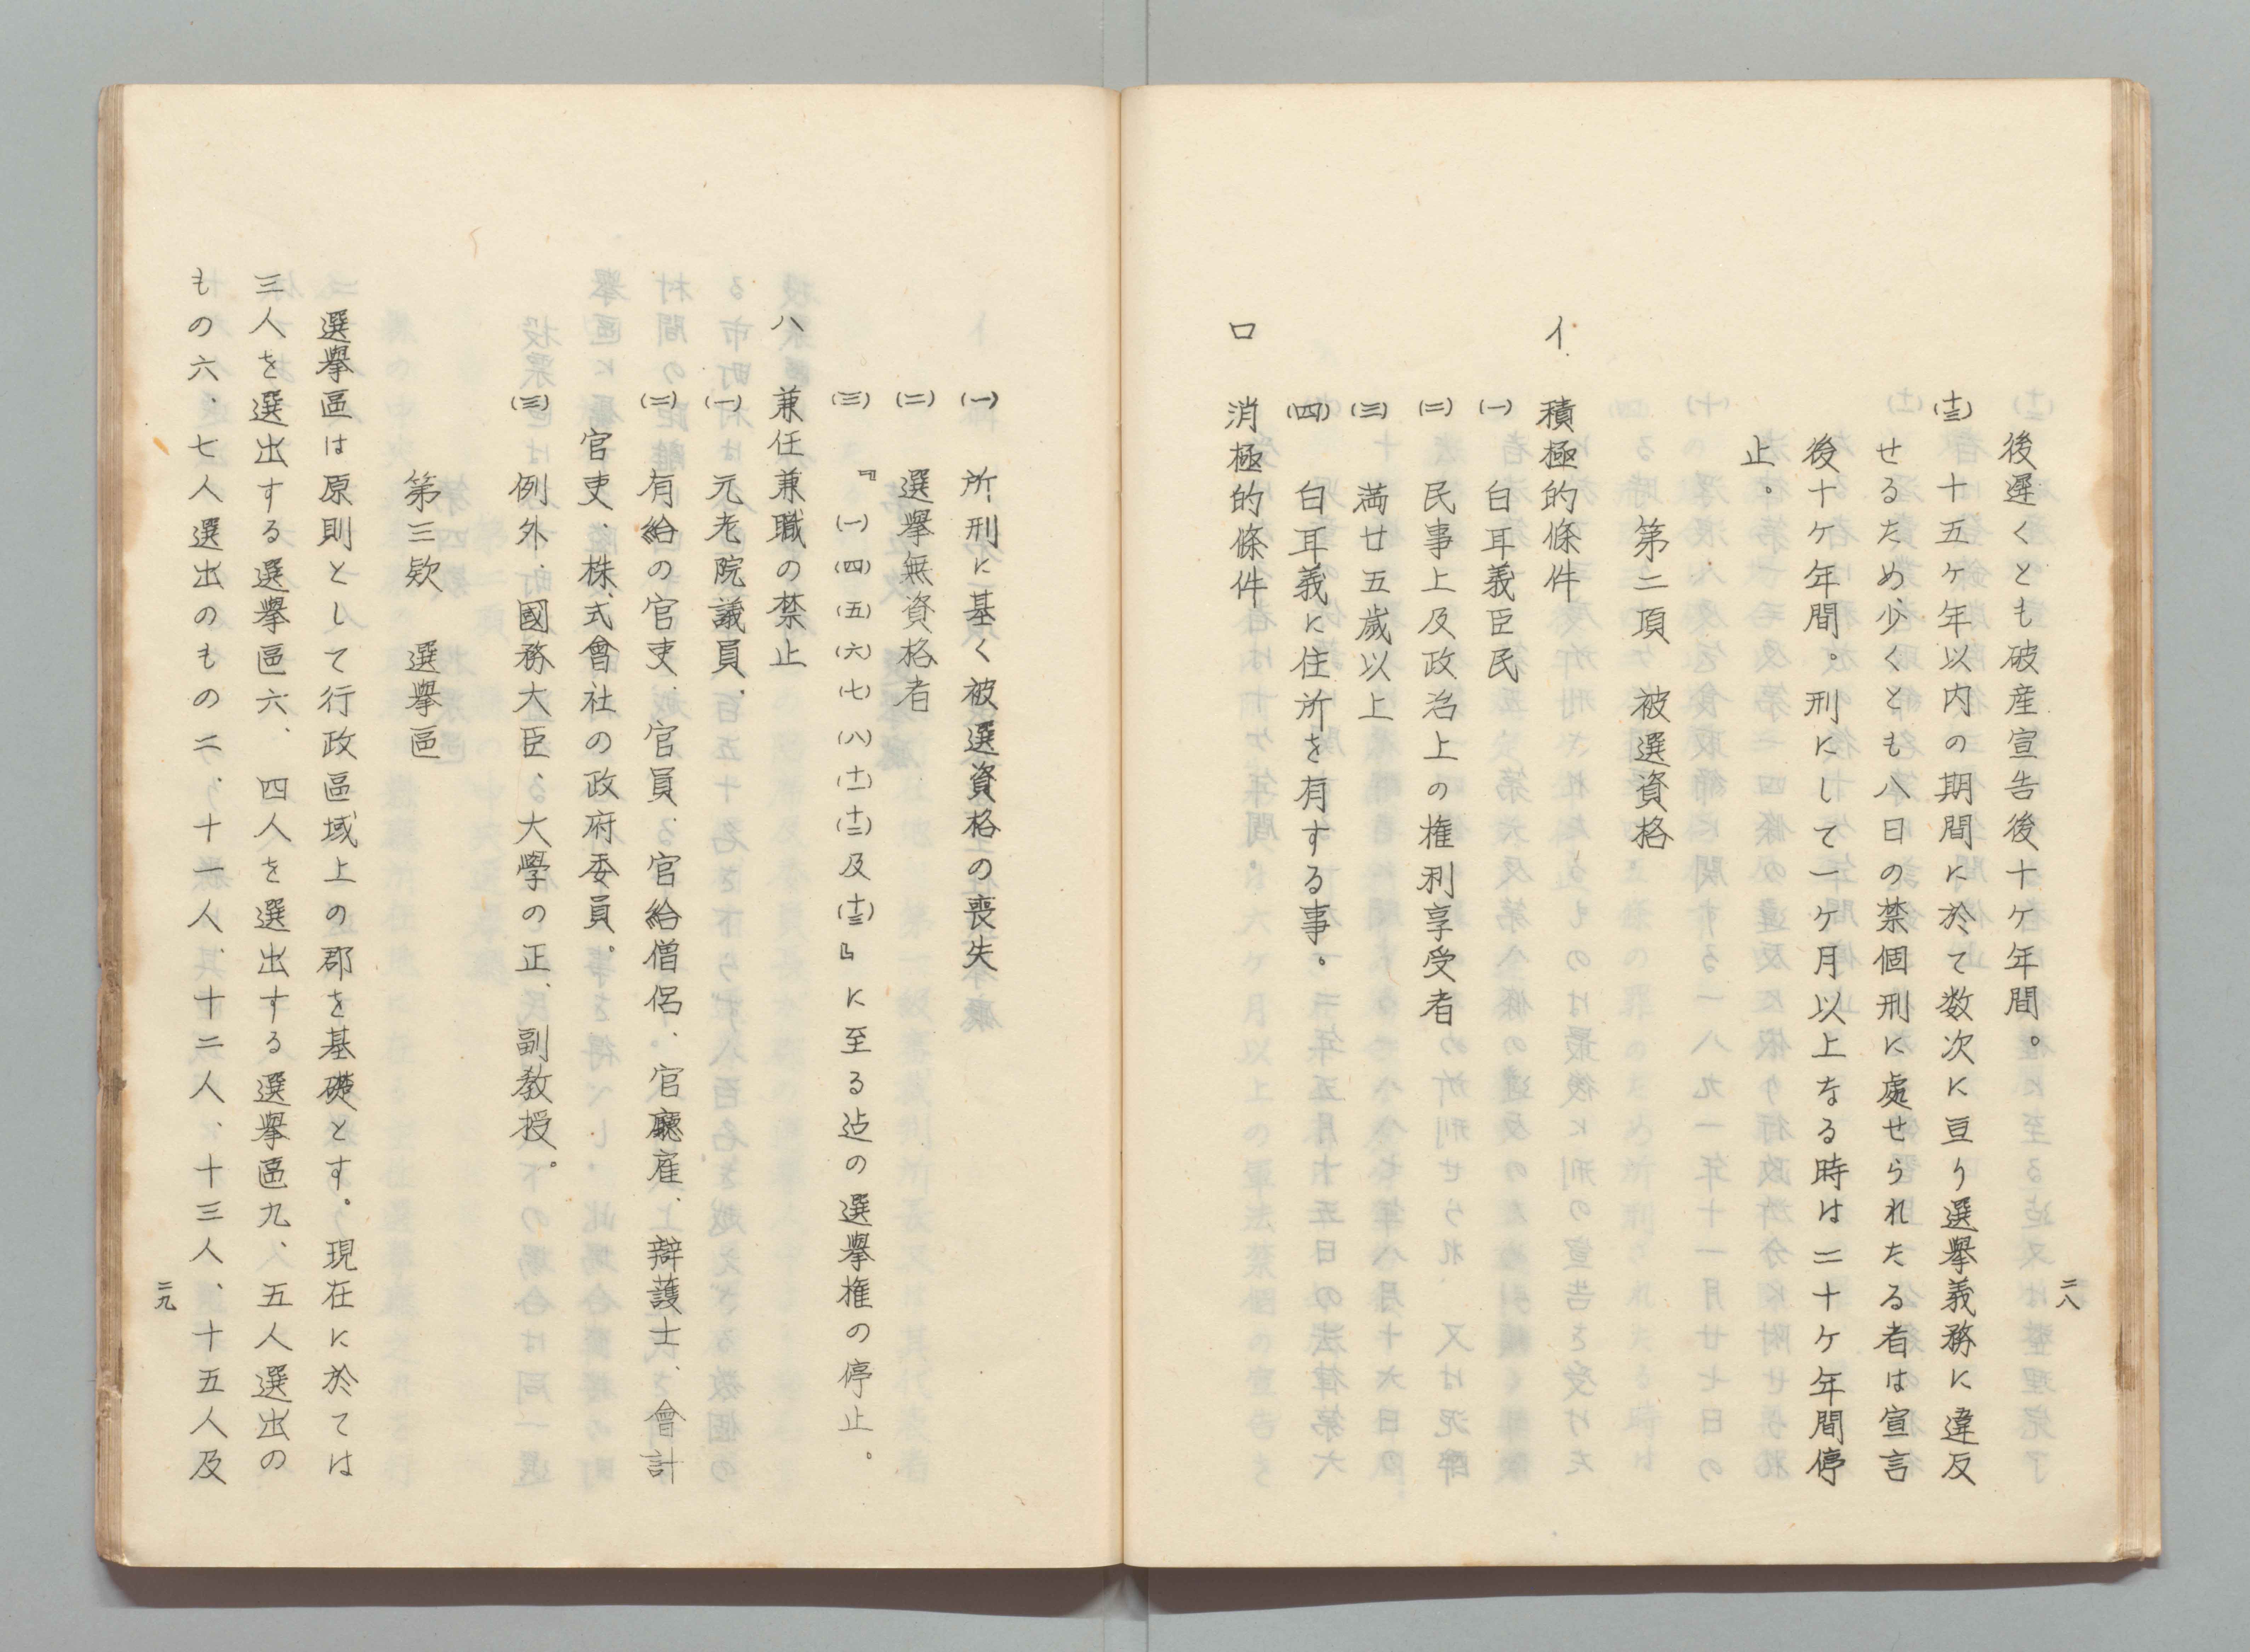 後遅くとも破産宣告後十ケ年間。
(十三) 十五ヶ年以内の期間に於て数次に亘り選擧義務に違反
せるため、少くとも八日の禁個刑に處せられたる者は宣言
後十ケ年間。刑にして一ヶ月以上なる時は二十ケ年間停
止。
第二項 被選資格
イ 積極的條件
(一) 白耳義臣民
(二) 民事上及政治上の権利享受者
(三) 満廿五歳以上
(四) 白耳義に住所を有する事。
ロ 消極的條件
二八
(一) 所刑に基く被選資格の喪失
(二) 選擧無資格者
(三) 『(一)(四)(五)(六)(七)(八)(十一)(十二)及(十三)』に至る迠の選擧権の停止。
八 兼任兼職の禁止
(一) 元老院議員、
(二) 有給の官吏、官員、官給僧侶、官廳雇、辯護士、會計
官吏、株式會社の政府委員。
(三) 例外、國務大臣、大學の正、副教授。
第三欵 選擧區
選擧區は原則として行政區域上の郡を基礎とす。現在に於ては
三人を選出する選擧區六、四人を選出する選擧區九、五人選出の
もの六、七人選出のもの二、十一人、十二人、十三人、十五人及
二九